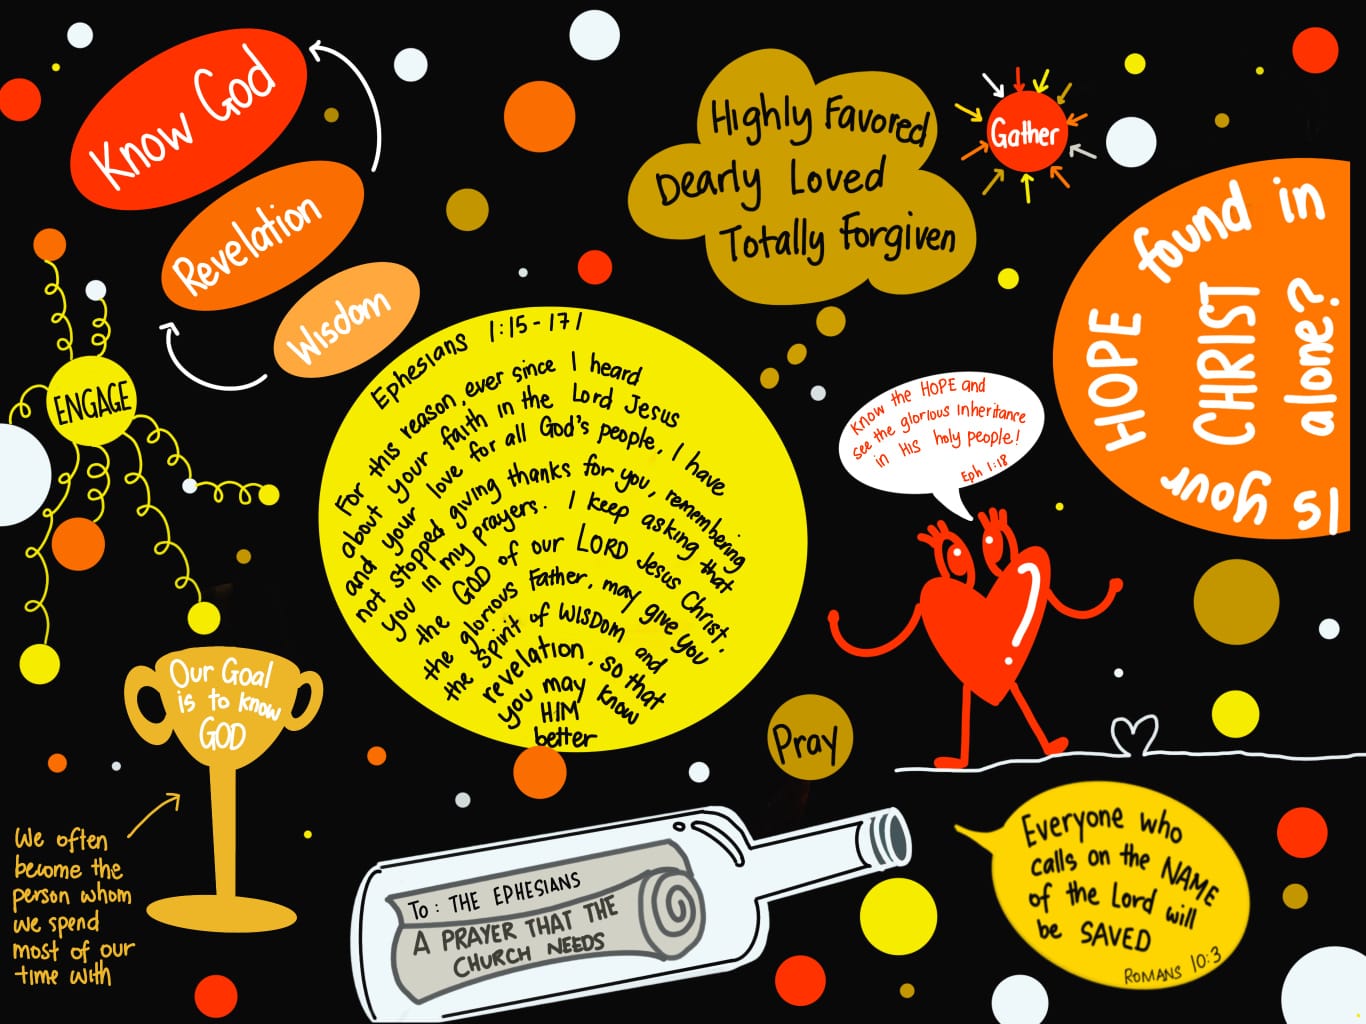 Know God
Revelation
Wisdom
Highly Favored
Dearly Loved
Totally Forgiven
Gather
HOPE found in
CHRIST alone?
Is your
ENGAGE
Ephesians 1:15-171
For this reason, ever since I heard
about your faith in the Lord Jesus
and your love for all God's people, I have
not stopped giving thanks for you, remembering
you in my prayers. I keep asking that
the GOD of our LORD Jesus Christ,
the glorious Father, may give you
the spirit of WISDOM and
revelation, so that
you may know
HIM
better
Know the HOPE and
see the glorious inheritance
in HIS holy people!
Eph 1:18
Our Goal
is to know
GOD
We often
become the
person whom
we spend
most of our
time with
Pray
To: THE EPHESIANS
A PRAYER THAT THE
CHURCH NEEDS
Everyone who
calls on the NAME
of the Lord will
be SAVED
ROMANS 10:3